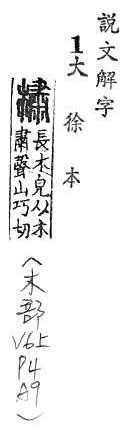 說文解字
1大徐本
橚
長木皃从木
肅聲山巧切
(木部
V6上
P4
A9)